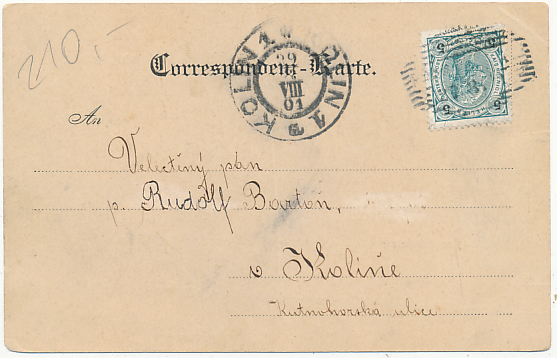 210,-
Correspondenz-Karte.
KOLN 1 KOLIN 1
29
VIII
01
5 5
5 5
An
Velectěný pán
p. Rudolf Bartoň,
v Kolíně
Kutnohorská ulice